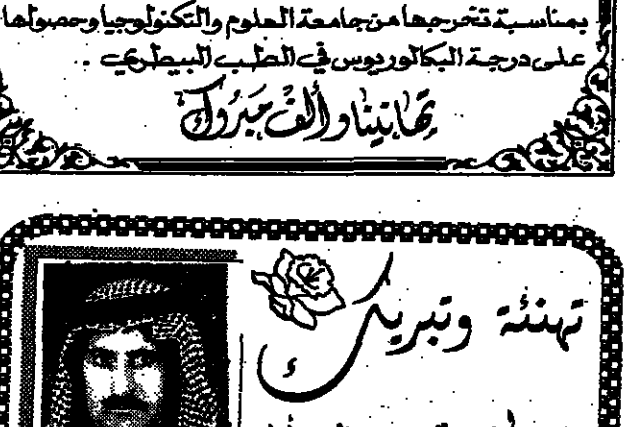 بمناسبة تخرجها من جامعة العلوم والتكنولوجيا وحصولها
على درجة البكالوريوس في الطب البيطري .
تهانينا وألف مبروك
تهنئة وتبريك